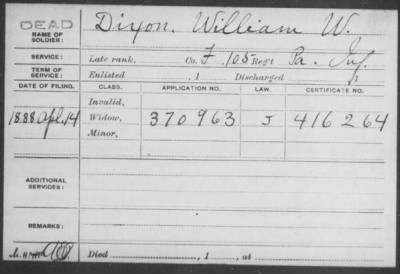 DEAD
NAME OF SOLDIER: Dixon, William W.
SERVICE: Late rank, Co. F. 105 Reg't Pa. Inf.
TERM OF SERVICE: Enlisted , 1 Discharged , 1
DATE OF FILING. CLASS. APPLICATION NO. LAW. CERTIFICATE NO.
Invalid,
1888 Apl. 14 Widow, 370963 J 416264
Minor,
ADDITIONAL SERVICES:
REMARKS:
Died , 1 , at